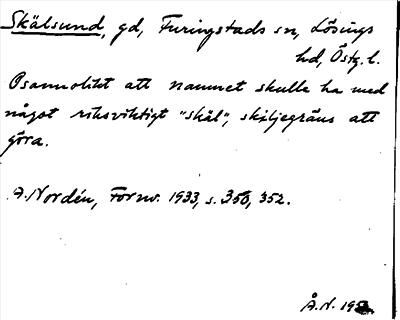 Skälsund, gd, Furingstads sn, Lösings
hd, Östg. l.
Osannolikt att namnet skulle ha med
något riksviktigt "skäl", skiljegräns att
göra.
A. Nordén, Fornv. 1933, s. 350, 352.
Å.N. 195